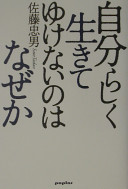 自分らしく
生きて
ゆけないのは
なぜか
佐藤忠男
poplar